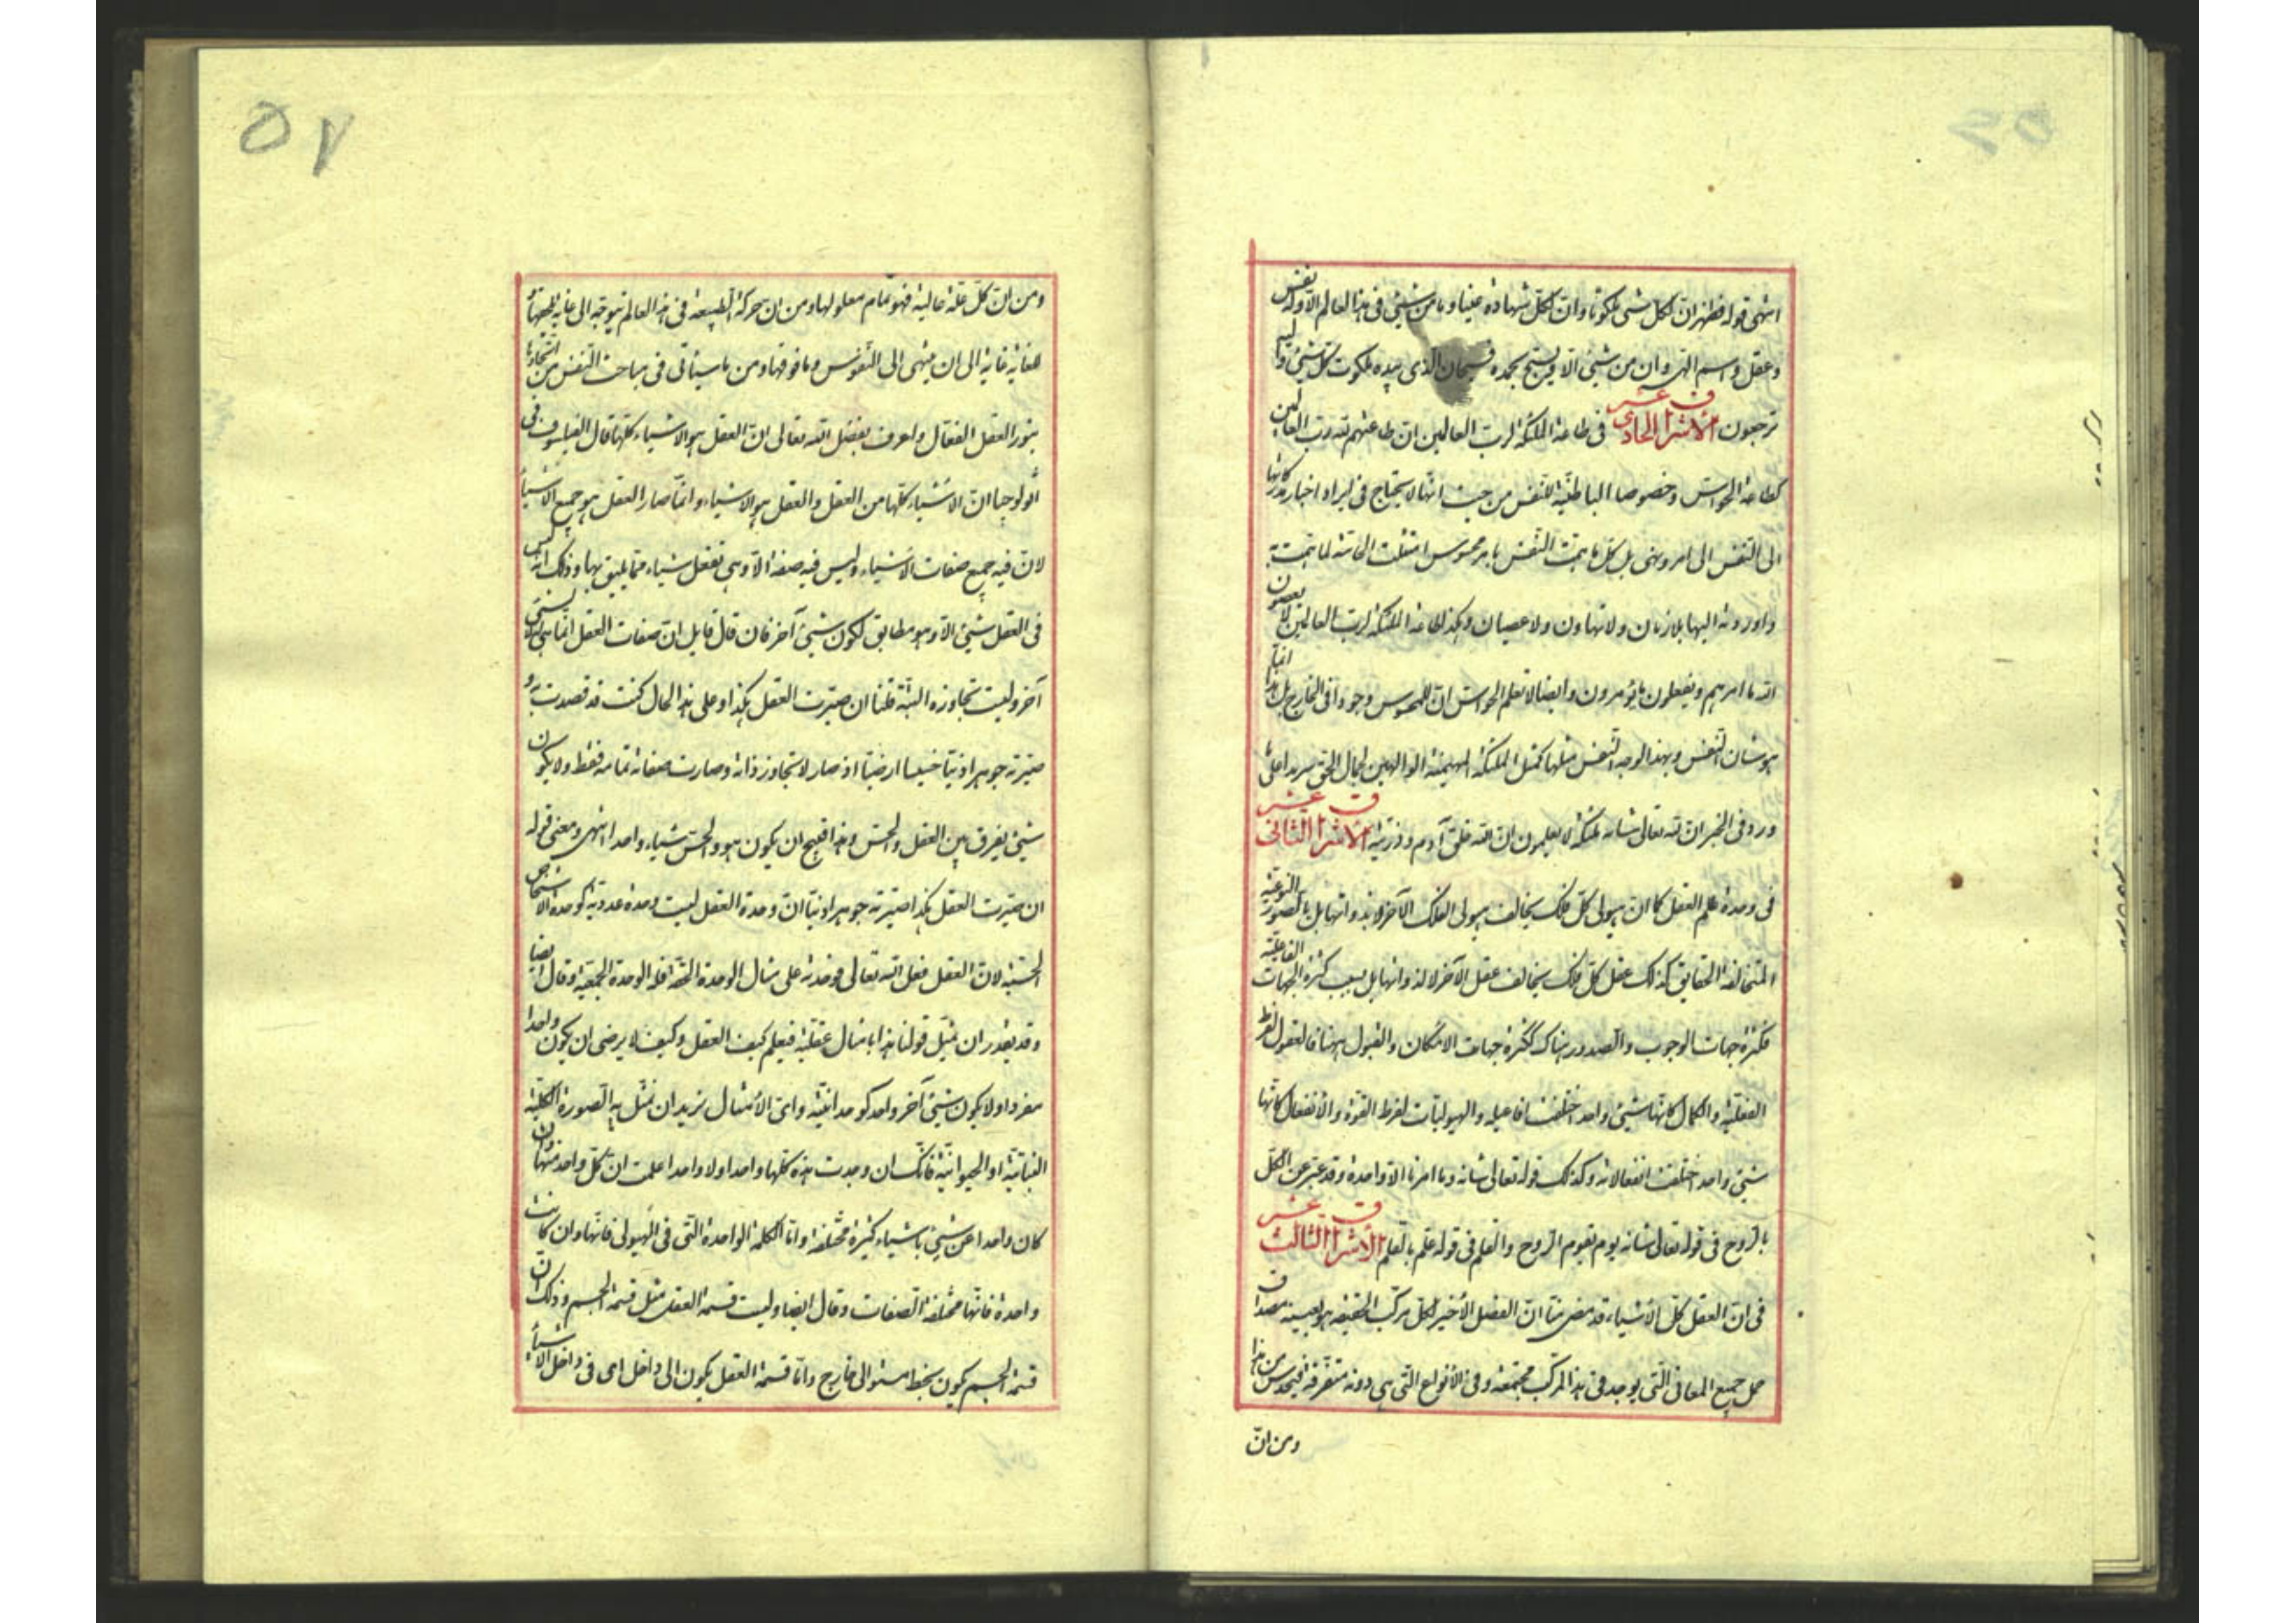 انتهى قوله فظهر ان لكل شئ ملكوتا وان لكل شهادة غيبا وما من شئ في هذا العالم الا وله نفس
وعقل واسم الهى وان من شئ الا يسبح بحمده فسبحان الذى بيده ملكوت كل شئ واليه
ترجعون الاشراق الحادى عشر فى طاعة الملئكة لرب العالمين ان طاعتهم لله رب العالمين
كطاعة الحواس وخصوصا الباطنية للنفس من حيث انها لا يحتاج فى ايراد اخبار مدركاتها
الى النفس الى امر ونهى بل كل ما همت النفس بامر محسوس امتثلت الحاسة لما همت به
واوردته اليها بلا زمان ولا تهاون ولا عصيان وهكذا طاعة الملئكة لرب العالمين لا يعصون
الله ما امرهم ويفعلون ما يؤمرون وايضا لا تعلم الحواس ان للمحسوس وجودا فى الخارج بل هذا انما
هو شان النفس وبهذا الوجه النفس مثلها كمثل الملئكة المهيمنة الوالهين لجمال الحق سرمدا على ما
ورد فى الخبر ان لله تعالى شانه ملئكة لا يعلمون ان الله خلق آدم وذريته الاشراق الثانى عشر
فى وحدة عالم العقل كما ان هيولى كل فلك يخالف هيولى الفلك الآخر لا بذواتها بل بالصور النوعية
المتخالفة الحقايق كذلك عقل كل فلك يخالف عقل الآخر لا لذواتها بل بسبب كثرة الجهات الفاعلية
فكثرة جهات الوجوب والصدور هناك ككثرة جهات الامكان والقبول ههنا فالعقول لفرط
الفعلية والكمال كانها شئ واحد اختلفت افاعيله والهيوليات لفرط القوة والانفعال كانها
شئ واحد اختلفت انفعالاته وكذلك قوله تعالى شانه وما امرنا الا واحدة وقد عبر عن الكل
بالروح فى قوله تعالى شانه يوم يقوم الروح والقلم فى قوله علم بالقلم الاشراق الثالث عشر
فى ان العقل كل الاشياء قد مضى منا ان الفصل الاخير لكل مركب الحقيقة هو بعينه مصداق
حمل جميع المعانى التى يوجد فى هذا المركب مجتمعة وفى الانواع التى هى دونه متفرقة فيحدس من هذا
ومن ان
٥٧
ومن ان كل علة عالية فهو تمام معلولها ومن ان حركة الطبيعة فى هذا العالم يتوجه الى غاية
للغاية غاية الى ان ينتهى الى النفوس وما فوقها ومن ما سيأتى فى مباحث النفس من اتحادها
بنور العقل الفعال ولعرف بفضل الله تعالى ان العقل هو الاشياء كلها قال الفيلسوف فى
اثولوجيا ان الاشياء كلها من العقل والعقل هو الاشياء وانما صار العقل هو جميع الاشياء
لان فيه جميع صفات الاشياء وليس فيه صفة الا وهى تفعل شيئا مما يليق بها وذلك انه ليس
فى العقل شئ الا وهو مطابق لكون شئ آخر فان قال قايل ان صفات العقل انما هى لا لشئ
آخر وليست تجاوزه البتة قلنا ان صيرت العقل هكذا وعلى هذا الحال كنت قد قصرت به و
صيرته جوهرا دنيا خسيسا ارضيا اذ صار لا يتجاوز ذاته وصارت صفاته تمامه فقط ولا يكون
شئ يفرق بين العقل والحس وهذا قبيح ان يكون هو والحس شيئا واحدا انتهى ومعنى قوله
ان صيرت العقل هكذا صيرته جوهرا دنيا ان وحدة العقل ليست وحدة عددية كوحدة الاشخاص
الحسية لان العقل فعل الله تعالى فوحدته على مثال الوحدة الحقة فله الوحدة الجمعية وقال ايضا
وقد نقدر ان نمثل قولنا هذا بامثال عقلية فيعلم كيف العقل وكيف لا يرضى ان يكون واحدا
مفردا ولا يكون شئ آخر واحد كوحدانيته واى الامثال نريد ان نمثل به الصورة الكلية
النباتية او الحيوانية فانك ان وجدت هذه كلها واحدا ولا واحدا علمت ان كل واحد منها وان
كان واحدا عن شئ باشياء كثيرة مختلفة واما الكلمة الواحدة التى فى الهيولى فانها وان كانت
واحدة فانها مختلفة الصفات وقال ايضا وليست قسمة العقل مثل قسمة الجسم وذلك ان
قسمة الجسم يكون بخط مستو الى خارج واما قسمة العقل يكون الى داخل اى فى داخل الاشياء